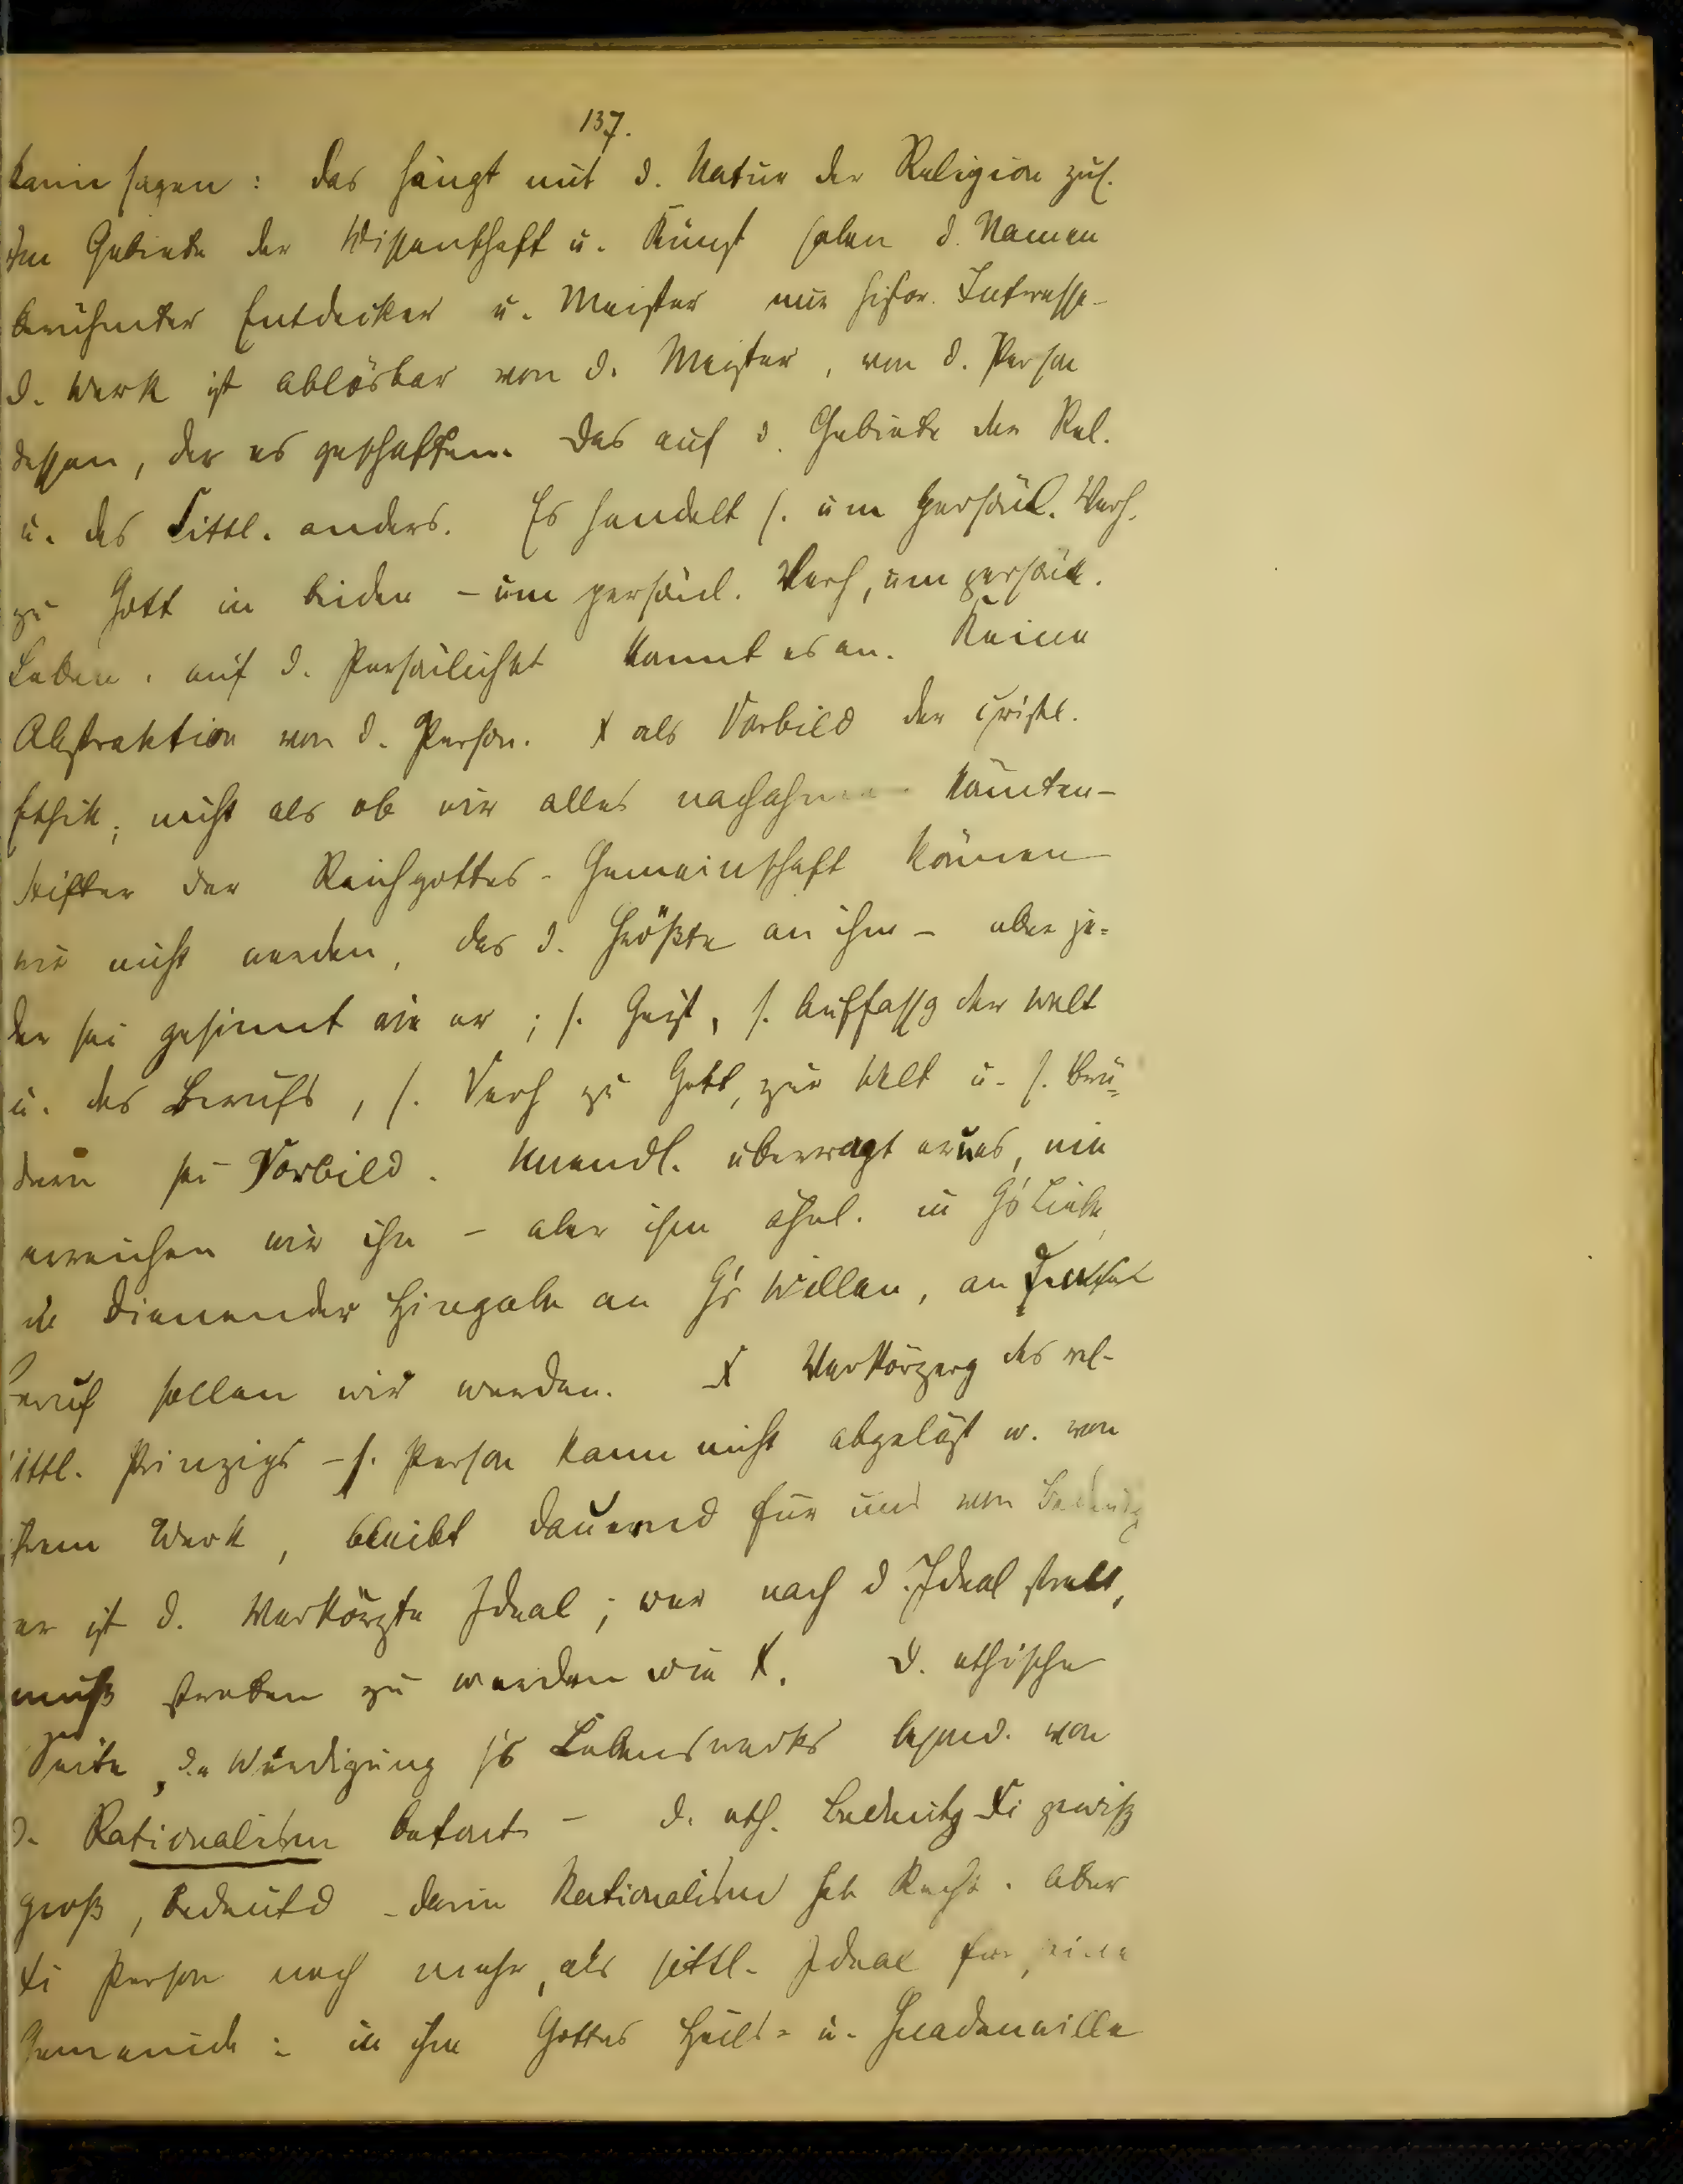 137.
kann sagen: das hängt mit d. Natur der Religion zus.
Im Gebiete der Wissenschaft u. Kunst haben d. Namen
berühmter Entdecker u. Meister nur histor. Interesse-
d. Werk ist ablösbar von d. Meister, von d. Person
dessen, der es geschaffen. Das auf d. Gebiete der Rel.
u. des Sittl. anders. Es handelt s. um persönl. Verh.
zu Gott in beiden - um persönl. Verh, um persönl.
Leben. auf d. Persönlichkt kommt es an. Keine
Abstraktion von d. Person. X als Vorbild der christl.
Ethik; nicht als ob wir alles nachahmen könnten-
Stifter der Reichgottes-Gemeinschaft können
wir nicht werden, das d. Größte an ihm - aber je-
der sei gesinnt wie er; s. Geist, s. Auffassg der Welt
u. des Berufs, s. Verh zu Gott, zur Welt u. s. Brü-
dern sei Vorbild. Unendl. überragt er uns, nie
erreichen wir ihn - aber ihm ähnl. in G's Liebe,
in dienender Hingabe an G's Willen, an
Beruf sollen wir werden. X Verkörperg des rel-
sittl. Prinzips - s. Person kann nicht abgelöst w. von
ihrem Werk, bleibt dauernd für uns von Bedeutg
er ist d. verkörpte Ideal; wer nach d. Ideal strebt,
muß streben zu werden wie X. D. ethische
Seite, die Würdigung s's Lebenswerks besond. von
d. Rationalism betont - d. eth. Bedeutg Xi gewiß
groß, bedeutd - darin Rationalism hat Recht. Aber
Xi Person noch mehr, als sittl. Ideal für seine
Gemeinde: in ihm Gottes Heils- u. Gnadenwille